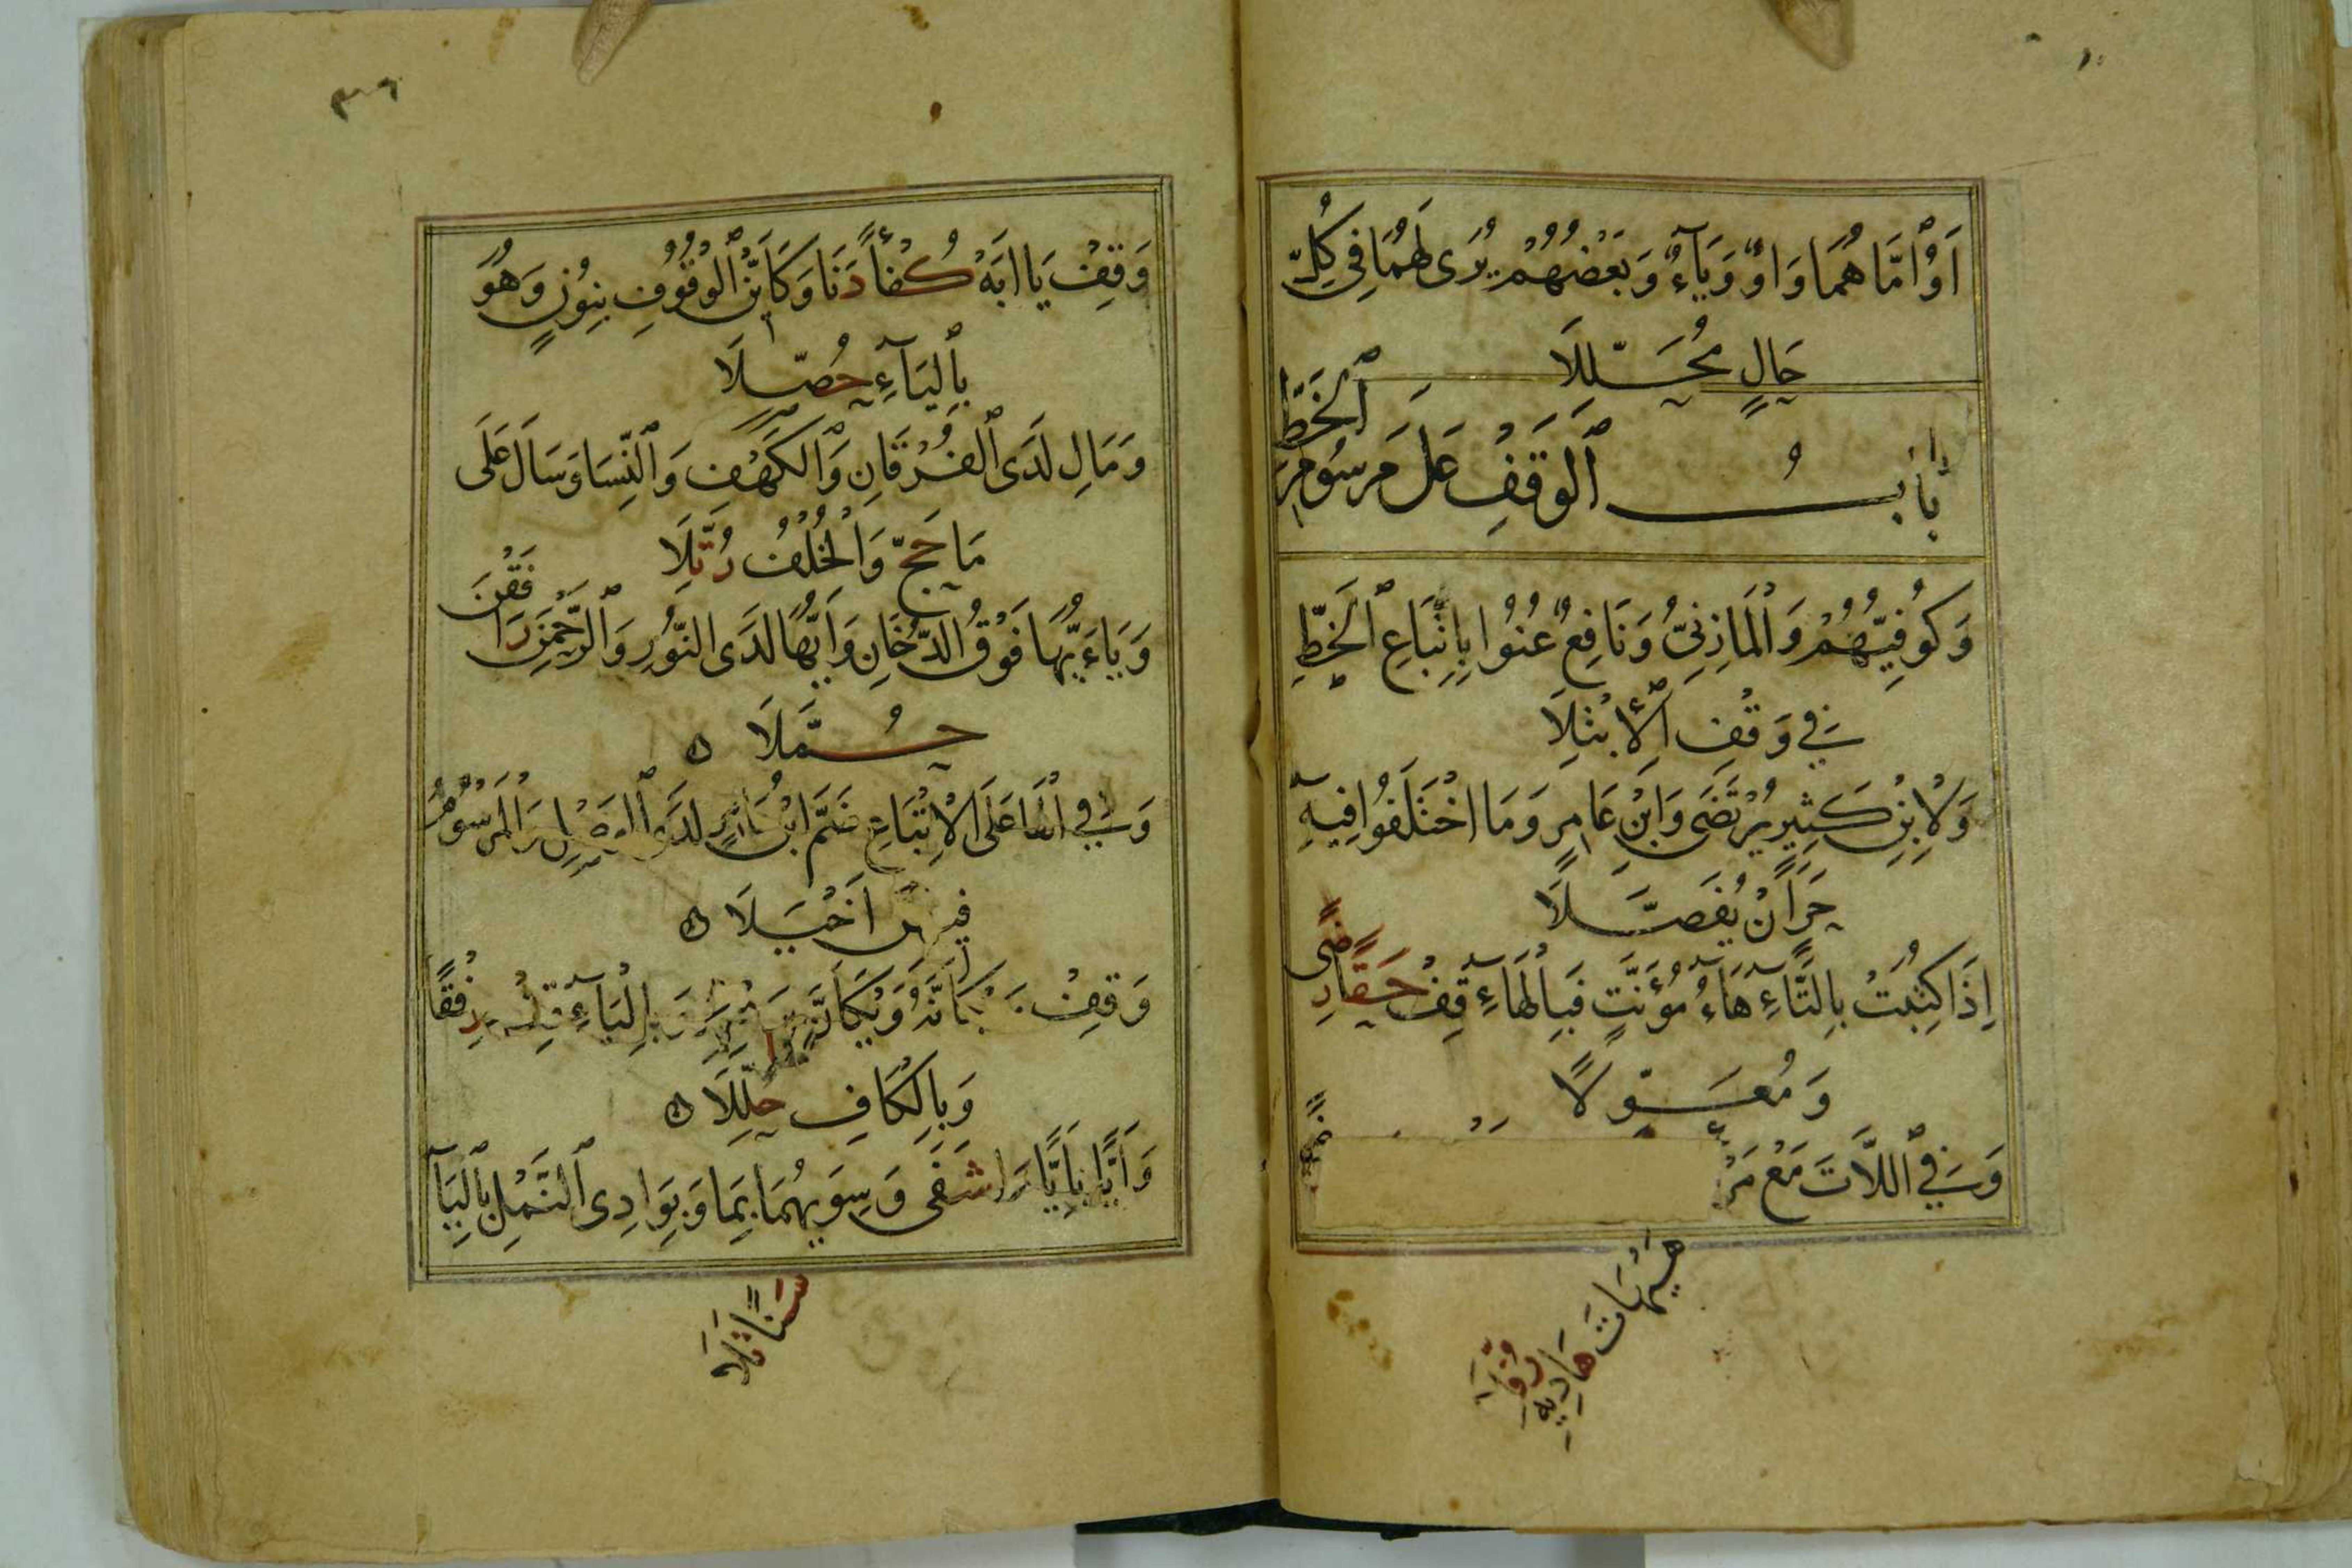 اَوُ امَّاهُمَا وَاوٌ وَيَآءٌ وَبَعْضُهُمْ يُرَى لَهُمَا فِي كُلِّ
حَالٍ مُحَلِّلَا
بَابُ الْوَقْفِ عَلَى مَرسُومِ الْخَطِّ
وَكُوفِيُّهُمْ وَالْمَازِنِيُّ وَنَافِعٌ عُنُوا بِاِتِّبَاعِ الْخَطِّ
فِي وَقْفِ الْاِبْتِلَا
وَلِابْنِ كَثِيرٍ يُرْتَضَى وَابْنِ عَامِرٍ وَمَا اخْتَلَفُوا فِيهِ
حَرٍ اَنْ يُفَصَّلَا
اِذَا كُتِبَتْ بِالتَّاءِ هَاءُ مُؤَنَّثٍ فَبِالْهَاءِ قِفْ حَقًّا رِضًى
وَمُعَوِّلًا
وَفِي اللَّاتَ مَعْ مَرْ
هَيْهَاتَ هَادِيهِ رُفِّلَا
٣٦
وَقِفْ يَا اَبَهْ كُفْأً دَنَا وَكَأَيِّنْ الْوُقُوفُ بِنُونٍ وَهُوَ
بِالْيَآءِ حُصِّلَا
وَمَالِ لَدَى الْفُرْقَانِ وَالْكَهْفِ وَالنِّسَا وَسَالَ عَلَى
مَا حَجَّ وَالْخُلْفُ رُتِّلَا
وَيَاءَيُّهَا فَوْقَ الدُّخَانِ وَاَيُّهَا لَدَى النُّورِ وَالرَّحْمٰنِ رَافَقْنَ
حُمَّلَا
وَفِي الْهَا عَلَى الْاِتْبَاعِ ضَمَّ ابْنُ عَامِرٍ لَدَى الْوَصْلِ وَالْمَرْسُومُ
فِيهِنَّ اَخْيَلَا
وَقِفْ وَيْكَأَنَّهُ وَيْكَأَنَّ بِرَسْمِهِ وَبِالْيَاءِ قِفْ رِفْقًا
وَبِالْكَافِ حُلِّلَا
وَاَيًّا بِاَيًّا مَا شَفَى وَسِوَيهُمَا بِمَا وَبِوَادِى النَّمْلِ بِالْيَا
سَنًا تَلَا